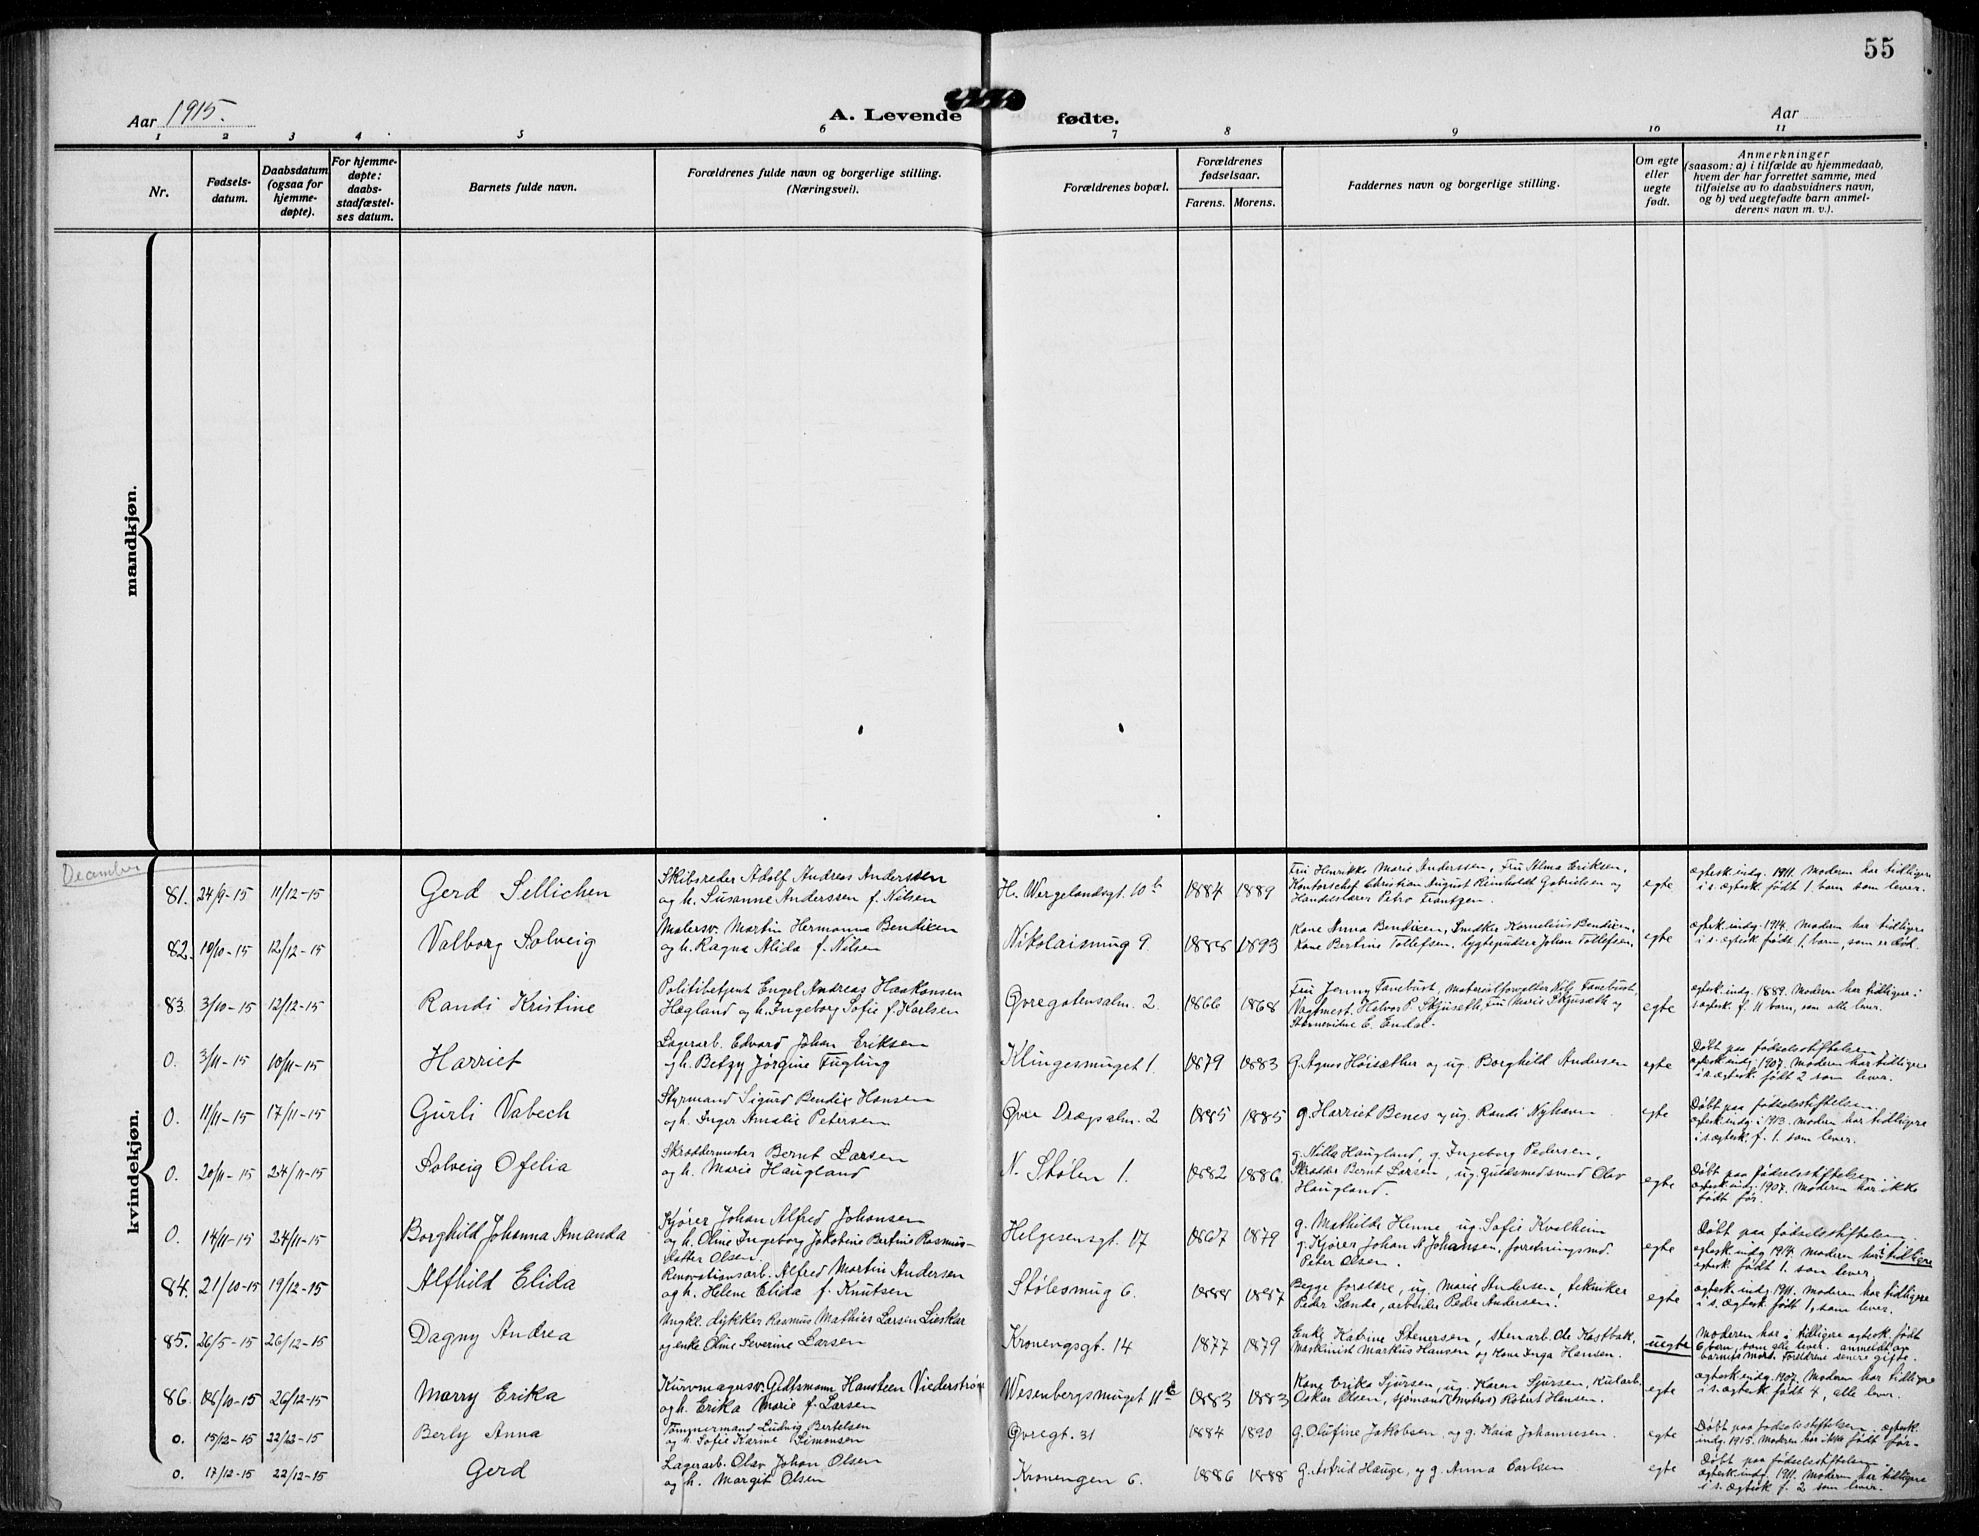 55
Aar 1915.
A. Levende fødte.
Aar
1 2 3 4 5 6 7 8 9 10 11
Nr.
Fødsels-
datum.
Daabsdatum
(ogsaa for
hjemme-
døpte).
For hjemme-
døpte:
daabs-
stadfæstel-
ses datum.
Barnets fulde navn.
Forældrenes fulde navn og borgerlige stilling.
(Næringsvei).
Forældrenes bopæl.
Forældrenes
fødselsaar.
Farens. Morens.
Faddernes navn og borgerlige stilling.
Om egte
eller
uegte
født.
Anmerkninger
(saasom: a) i tilfælde av hjemmedaab,
hvem der har forrettet samme, med
tilføielse av to daabsvidners navn,
og b) ved uegtefødte barn anmel-
derens navn m. v.).
mandkjøn.
kvindekjøn.
December
81. 24/9-15 11/12-15 Gerd Sellichen
Skibsreder Adolf Andreas Anderssen
og h. Susanne Anderssen f. Nilsen
H. Wergelandsgt. 10b 1884 1889
Fru Henrikke Marie Anderssen, Fru Alma Eriksen,
Kontorschef Christian August Reinholdt Gabrielsen og
Handelslærer Petro Frantzen.
egte
egtesk. indg. 1911. Moderen har tidligere
i s. egtesk. født 1 barn som lever.
82. 10/10-15 12/12-15 Valborg Solveig
Malersv. Martin Hermann Bendixen
og h. Ragna Alida f. Nilsen
Nikolaismug 9. 1888 1893
Kone Anna Bendixen, Smed Kornelius Bendixen,
Kone Bertine Tollefsen, lygtepudser Johan Tollefsen.
egte
egtesk. indg. 1914. Moderen har tidligere
i s. egtesk. født 1 barn, som er død.
83. 3/10-15 12/12-15 Randi Kristine
Politibetjent Engel Andreas Haakonsen
Hægland og h. Ingeborg Sofie f. Karlsen
Øvregatensalm. 2. 1866 1868
Fru Jenny Fanebust, Materialforvalter Nils Fanebust,
Vagtmest. Helvor P. Skjuseth, Fru Marie Skjusæth og
E. Endal.
egte
egtesk. indg. 1889. Moderen har tidligere i
s. egtesk. f. 11 barn, som alle lever.
0. 3/11-15 10/11-15 Harriet
Lagerarb. Edvard Johan Eriksen
og h. Betzy Jørgine Fugling
Klingesmuget 1. 1879 1883
g. Agnes Høisæther og ug. Borghild Andersen
egte
Døbt paa fødselsstiftelsen
egtesk. indg. 1907. Moderen har tidligere
i s. egtesk. født 2 som lever.
0. 11/11-15 17/11-15 Gurli Vabech
Styrmand Sigurd Bendix Hansen
og h. Inger Amalie Petersen
Øvre Drægsalm. 2 1885 1885
g. Harriet Benes og ug. Randi Nyhaven
egte
Døbt paa fødselsstiftelsen.
egtesk. indg. i 1913. Moderen har tidligere
i s. egtesk. f. 1. som lever.
0. 20/11-15 24/11-15 Solveig Ofelia
Skræddermester Bernt Larsen
og h. Marie Haugland
N. Stølen 1. 1882 1886
g. Nilla Haugland, g. Ingeborg Pedersen,
Skrædder Bernt Larsen, ug. guldsmedsvend Olav
Haugland.
egte
Døbt paa fødselsstiftelsen.
egtesk. indg. 1907. Moderen har ikke
født før.
0. 14/11-15 24/11-15 Borghild Johanna Amanda
Kjører Johan Alfred Johansen
og h. Oline Ingeborg Jakobine Bertine Rasmus-
datter Olsen
Helgesensgt. 17 1867 1879
g. Mathilde Henne, ug. Sofie Kvalheim
g. Kjører Johan N. Johansen, forretningsmd.
Peter Olsen.
egte
Døbt paa fødselsstiftelsen.
egtesk. indg. 1914. Moderen har i tidligere
egtesk. født 1. som lever.
84. 21/10-15 19/12-15 Alfhild Elida
Renovationsarb. Alfred Martin Andersen
og h. Helene Elida f. Knutsen
Stølesmug 6. 1888 1887
Begge forældre, ug. Marie Andersen, tekniker
Peder Sande, arbeider Peder Andersen.
egte
egtesk. indg. 1911. Moderen har tidligere
i s. egtesk. født 1, som lever.
85. 26/5-15 26/12-15 Dagny Andrea
Ungkl. dykker Rasmus Mathias Larsen Lieskar
og enke Oline Severine Larsen
Kronengsgt. 14 1877 1879
Enke Katrine Stenersen, stenarb. Ole Kastbak,
Maskinist Markus Hansen og Kone Inga Hansen.
uegte
Moderen har i tidligere egtesk. født
6 barn, som alle lever. anmeldt av
barnets mor. Foreldrene senere gifte.
86. 08/10-15 26/12-15 Marry Erika
Kurvmagersv. Gidtsmann Hansteen Viederstrøm
og h. Erika Marie f. Larsen
Wesenbergsmuget 11b 1883 1883
Kone Erika Sjursen, ug. Karen Sjursen, Kularb.
Oskar Olsen, sjømand (matros) Robert Hansen.
egte
egtesk. indg. 1907. Moderen har tidligere
i s. egtesk. født 4, alle lever.
0. 15/12-15 22/12-15 Berly Anna
Tømmermand Ludvig Bertelsen
og h. Sofie Karine Simonsen
Øvregt. 31 1884 1890
g. Olufine Jakobsen, og g. Kaia Johannesen.
egte
Døbt paa fødselsstiftelsen. egtesk.
indg. 1915. Moderen har ikke født før.
0. 17/12-15 22/12-15 Gerd
Lagerarb. Olav Johan Olsen
og h. Margit Olsen
Kronengen 6. 1886 1888
g. Astrid Hauge, og g. Anna Carlsen
egte
Døbt paa fødselsstiftelsen.
egtesk. indg. 1911. Moderen har tidligere
i s. egtesk f. 2 som lever.